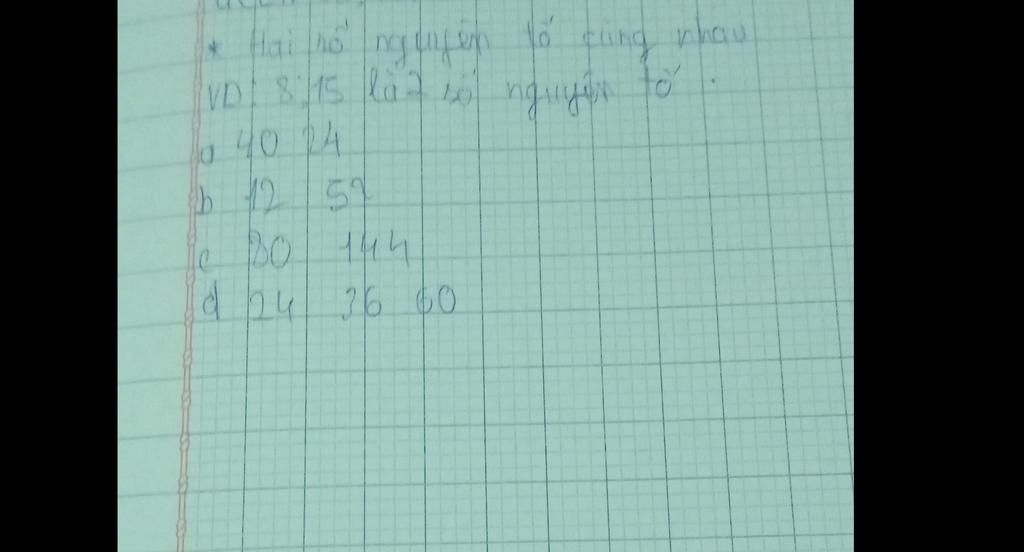 * Hai số nguyên tố cùng nhau
VD: 8; 15 là 2 số nguyên tố.
a 40 24
b 12 52
c 80 144
d 24 36 60